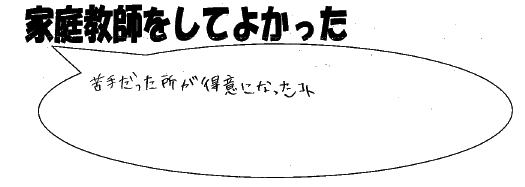 家庭教師をしてよかった
苦手だった所が得意になったコト